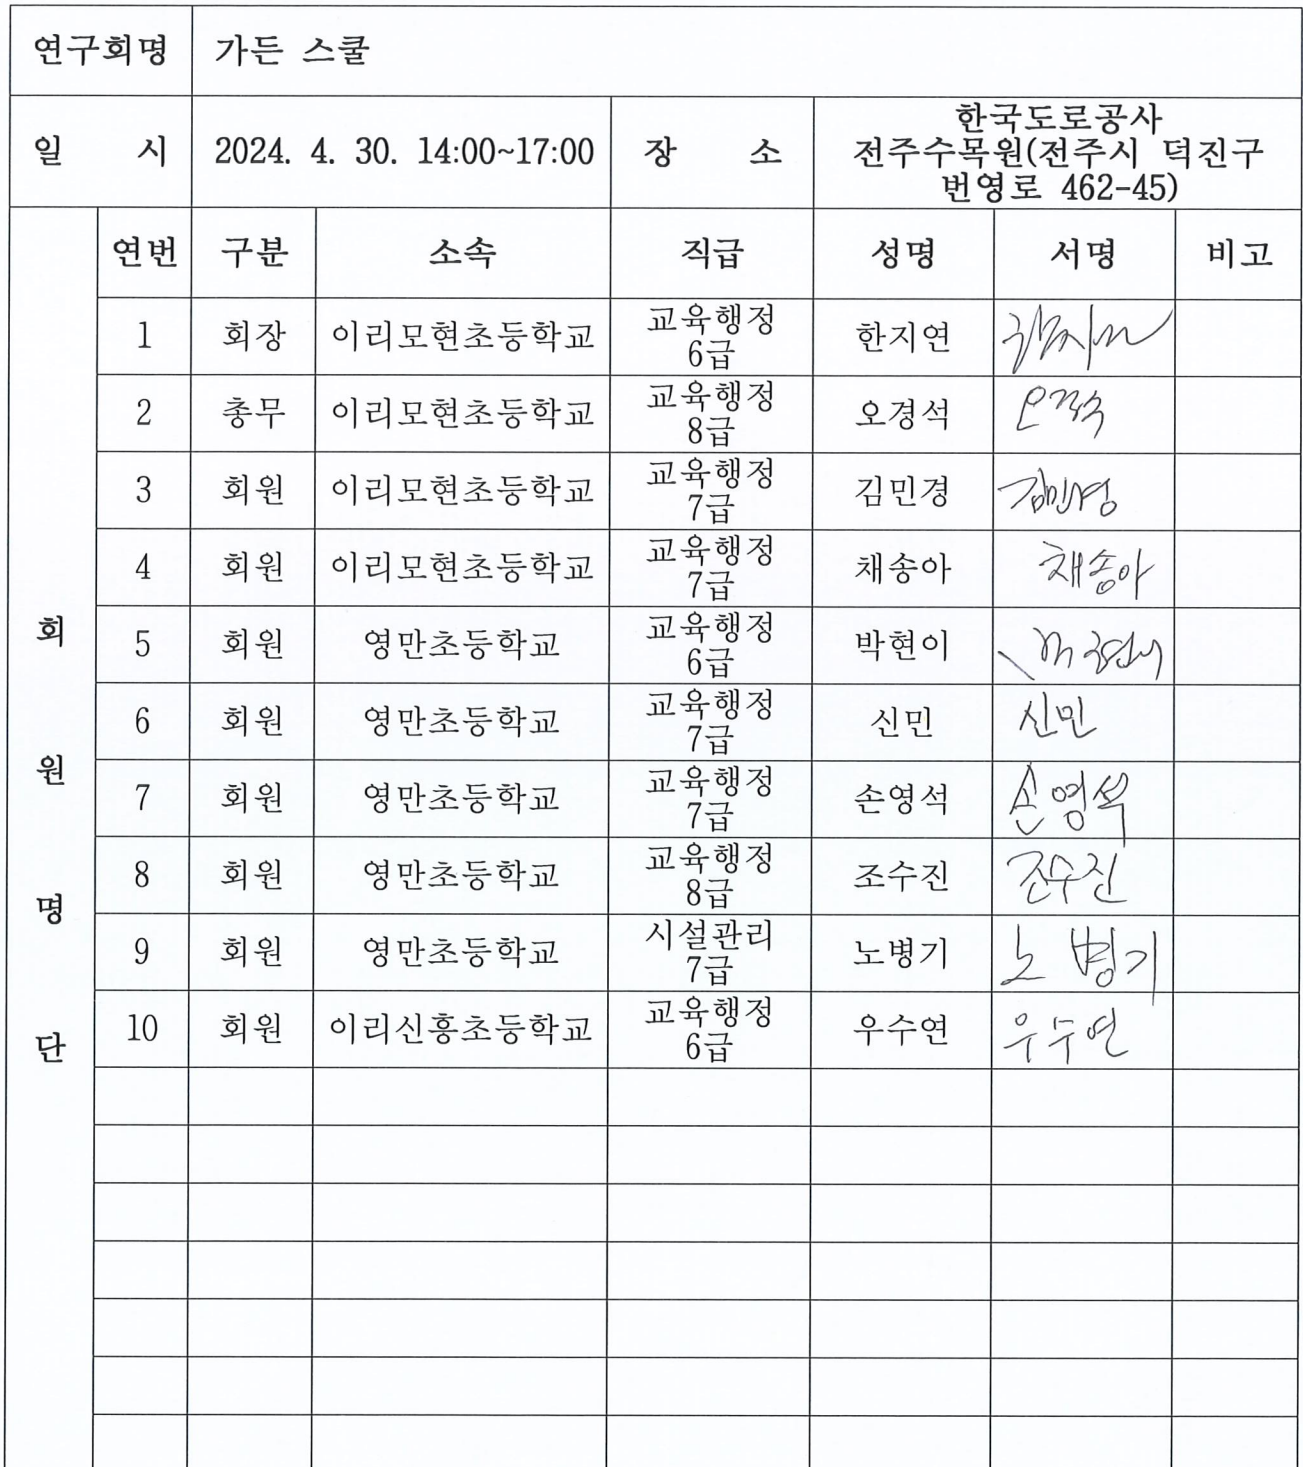 연구회명 가든 스쿨
일 시 2024. 4. 30. 14:00~17:00 장 소 한국도로공사
전주수목원(전주시 덕진구
번영로 462-45)
회원명단
연번 구분 소속 직급 성명 서명 비고
1 회장 이리모현초등학교 교육행정 6급 한지연 한지연
2 총무 이리모현초등학교 교육행정 8급 오경석
3 회원 이리모현초등학교 교육행정 7급 김민경 김민경
4 회원 이리모현초등학교 교육행정 7급 채송아 채송아
5 회원 영만초등학교 교육행정 6급 박현이 박현이
6 회원 영만초등학교 교육행정 7급 신민 신민
7 회원 영만초등학교 교육행정 7급 손영석 손영석
8 회원 영만초등학교 교육행정 8급 조수진 조수진
9 회원 영만초등학교 시설관리 7급 노병기 노병기
10 회원 이리신흥초등학교 교육행정 6급 우수연 우수연